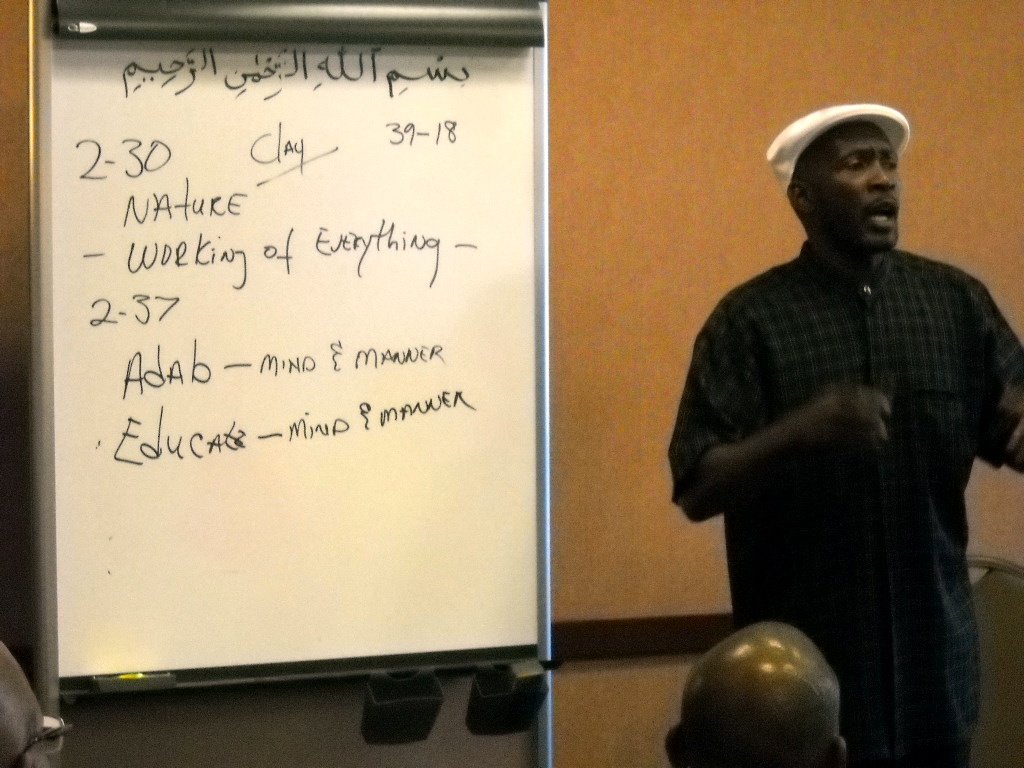 بِسْمِ اللَّهِ الرَّحْمَٰنِ الرَّحِيمِ
2-30 Clay 39-18
NAtuRE
- WORKing of EvERything -
2-37
AdAb - MIND & MANNER
. EducAte - MIND & MANNER